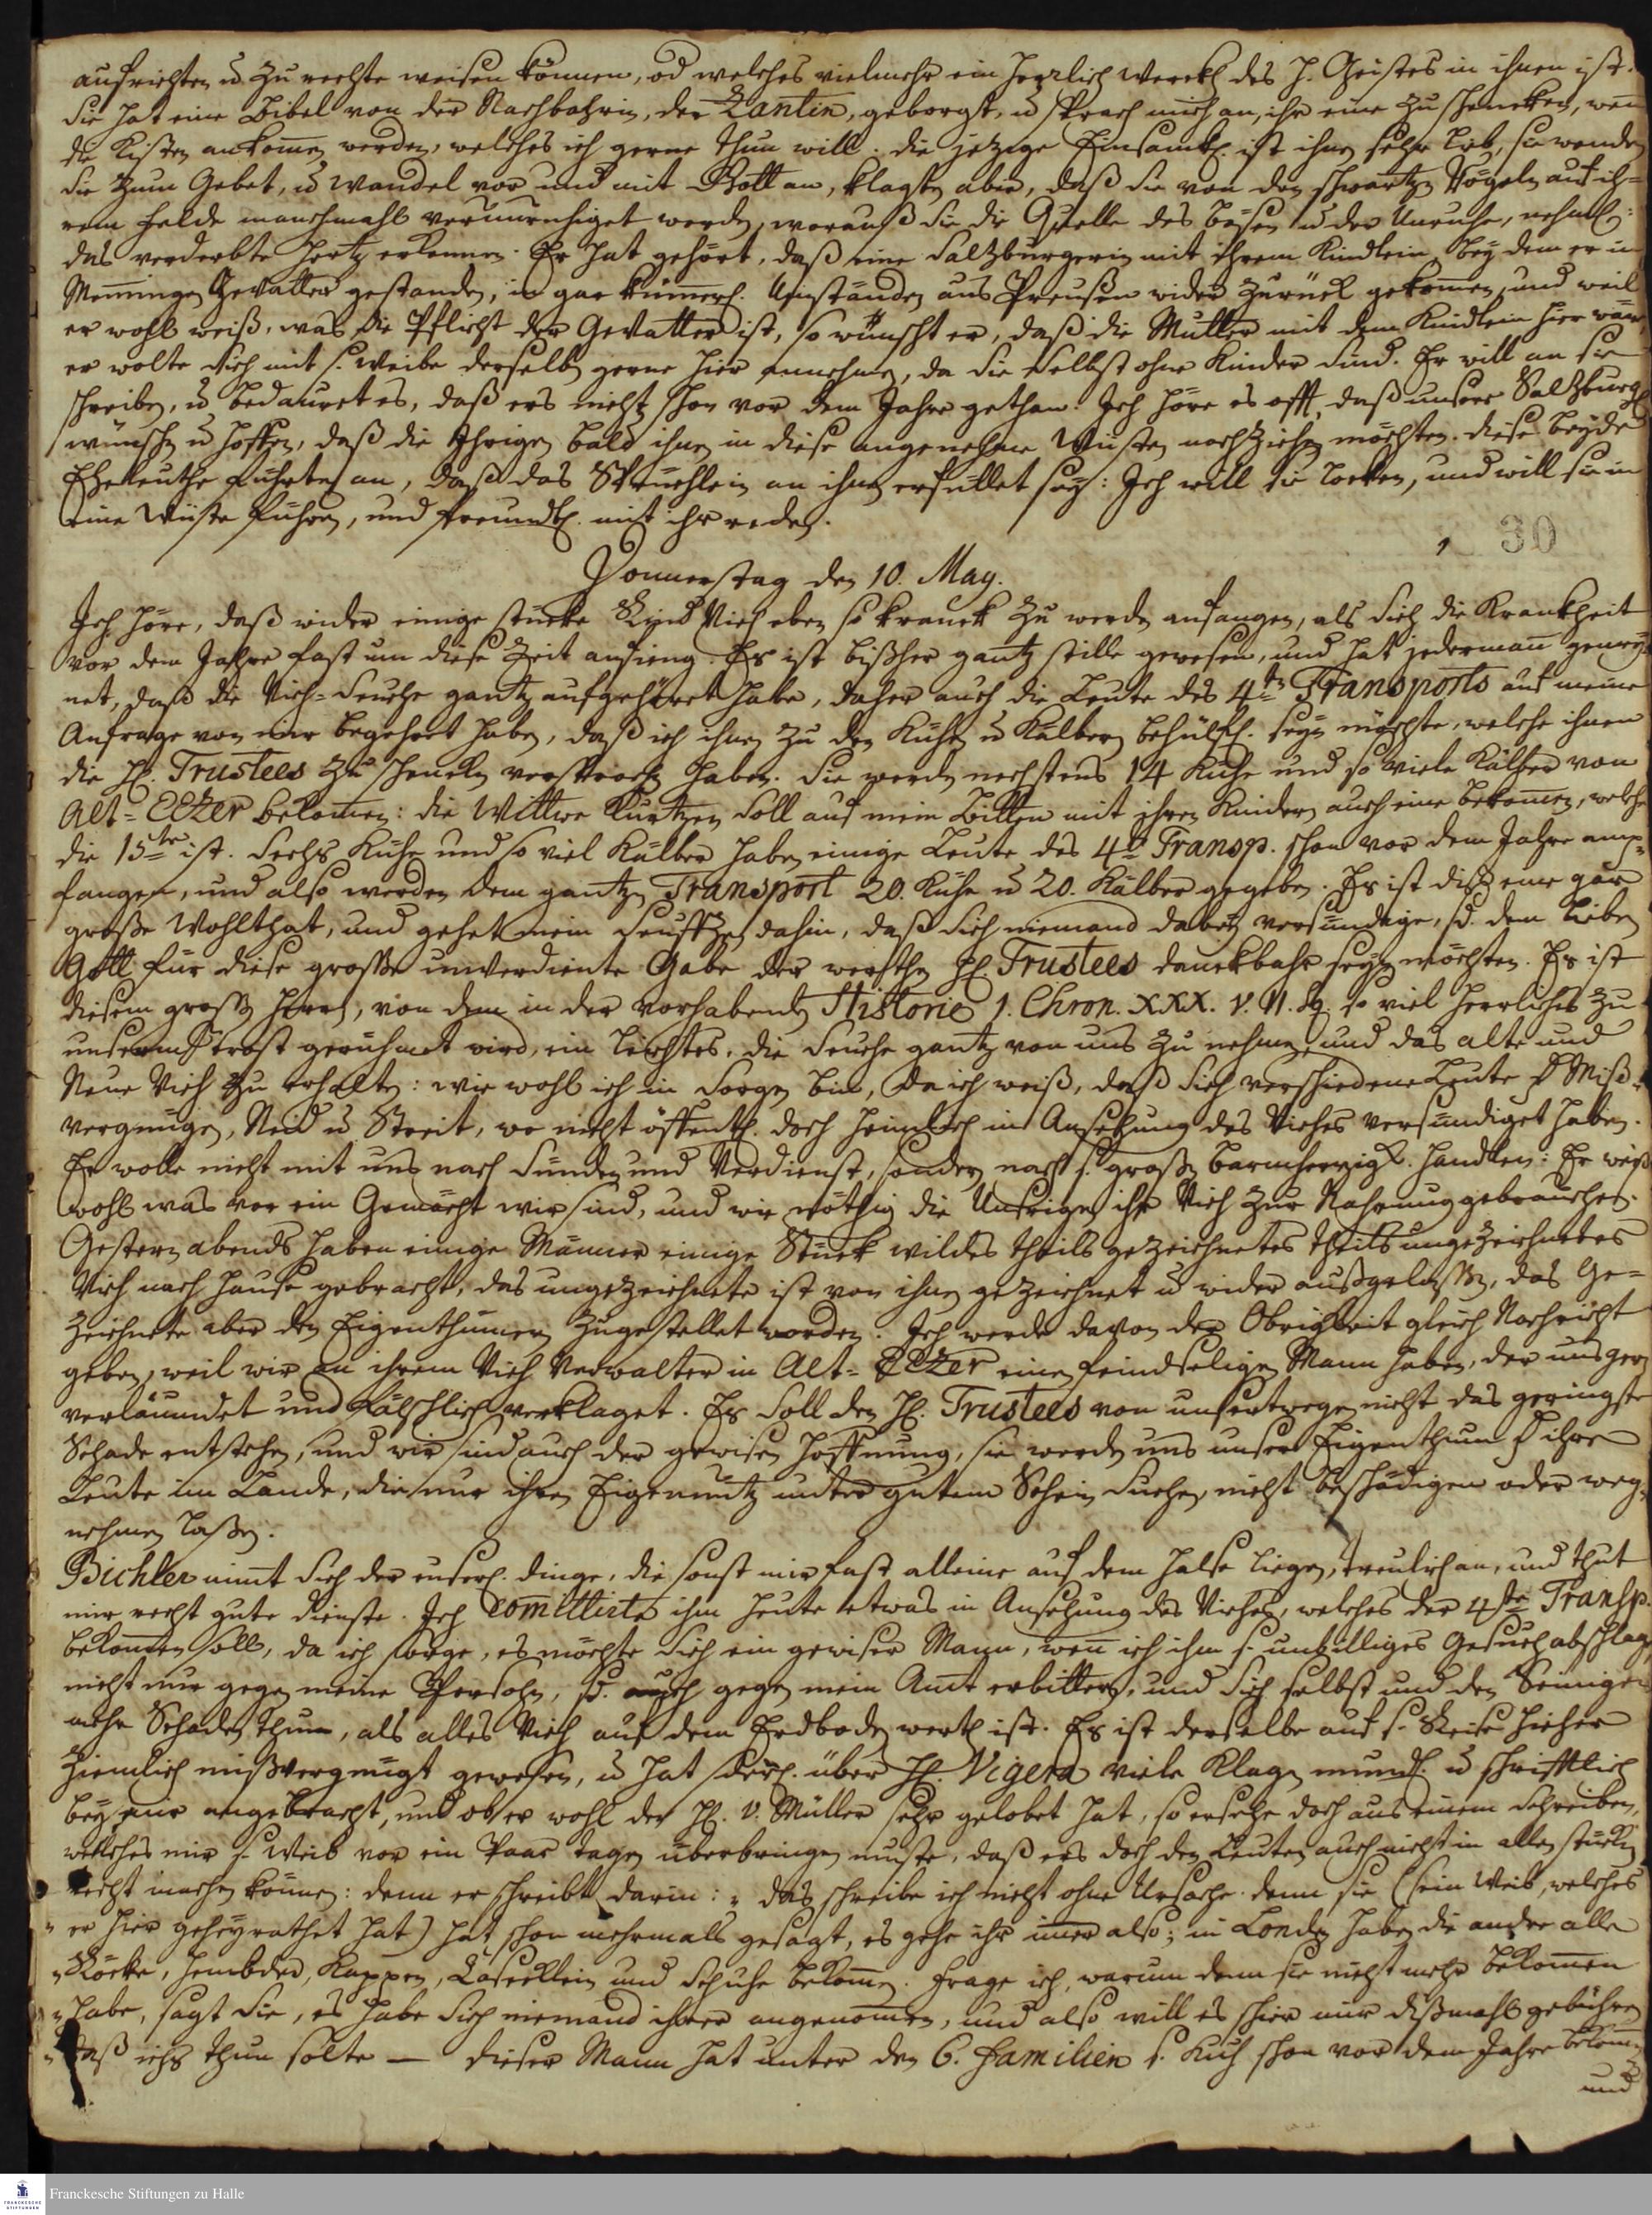 aufrichten u. zu rechte weisen können, od welches vielmehr ein herzlich Werck des H. Geistes in ihnen ist.
Sie hat eine Bibel von der Nachbahrin, der Zantin, geborgt, u. sprach mich an, ihr eine zu schencken, wenn
die Kisten ankomen werden, welches ich gerne thun will. Die jezige Einsamk. ist ihnen sehr lieb, sie wenden
sie zum Gebet, u. Wandel vor und mit Gott an, klagten aber, daß sie von den schwartzen Vögeln auf ih-
rem Felde manchmahl verunruhiget werden, worauß sie die Quelle des bösen u. der Unruhe, nehml:
das verderbte Hertz erkennen. Er hat gehört, daß eine Saltzburgerin mit ihrem Kindlein, bey dem er in
Memingen Gevatter gestanden, in gar kümerl. Umständen aus Preußen wider zurück gekomen, und weil
er wohl weiß, was die Pflicht der Gevatter ist, so wünscht er, daß die Mutter mit dem Kindlein hier wäre
er wolte sich mit s. Weibe derselben gerne hier annehmen, da sie selbst ohne Kinder sind. Er will an sie
schreiben, u. bedauret es, daß ers nicht schon vor dem Jahre gethan. Ich höre es offt, daß unsere Saltzburger
wünschen u. hoffen, daß die Ihrigen bald ihnen in diese angenehme Wüsten nachziehen möchten. Diese beyde
Eheleuthe führten an, daß das Sprüchlein an ihnen erfüllet sey: Ich will sie locken, und will sie in
eine Wüste führen, und freundl. mit ihr reden.
30
Donnerstag den 10. May.
Ich höre, daß wider einige stücke Rind Vieh eben so kranck zu werden anfangen, als sich die Kranckheit
vor dem Jahre fast um diese Zeit anfieng. Es ist bißher gantz stille gewesen, und hat jederman gemey-
net, daß die Vieh-Seuche gantz aufgehöret habe, daher auch die Leute des 4ten Transports auf meine
Anfrage von mir begehrt haben, daß ich ihnen zu den Kühen u. Kälbern behülfl. seyn möchte, welche ihnen
die H. Trustees zu schencken versprochen haben. Sie werden nechstens 14 Kühe und so viele Kälber von
Alt-Ebzer bekomen: die Wittwe Kurtzin soll auf mein Bitten mit ihren Kindern auch eine bekomen, welche
die 15te ist. Sechs Kühe und so viel Kälber haben einige Leute des 4ten Transp. schon vor dem Jahre emp-
fangen, und also werden dem gantzen Transport 20. Kühe u. 20. Kälber gegeben. Es ist diß eine gar
große Wohlthat, und gehet mein Seuffzen dahin, daß sich niemand dabey versündige, sd. dem lieben
Gott für diese große unverdiente Gabe der werthen H. Trustees danckbahr seyn möchten. Es ist
diesem großen Herrn, von dem in der vorhabenden Historie 1. Chron. XXX. v. 11. sq so viel herrliches zu
unserm Trost gerühmet wird, ein leichtes, die Seuche gantz von uns zu nehmen und das alte und
Neue Vieh zu erhalten: wie wohl ich in Sorgen bin, da ich weiß, daß sich verschiedene Leute d. Miß-
vergnügen, Neid u. Streit, wo nicht öffentl. doch heimlich in Ansehung des Viehes versündiget haben.
Er wolle nicht mit uns nach Sünden und Verdienst, sondern nach s. großen Barmherzigk. handlen: Er weiß
wohl was vor ein Gemächt wir sind, und wie nöthig die Unsrigen ihr Vieh zur Nahrung gebrauchen.
Gestern abends haben einige Männer einige Stück wildes theils gezeichnetes theils ungezeichnetes
Vieh nach Hause gebracht, das ungezeichnete ist von ihnen gezeichnet u. wider außgelaßen, das Ge-
zeichnete aber den Eigenthümern zugestellet worden. Ich werde davon der Obrigkeit gleich Nachricht
geben, weil wir an ihrem Vieh Verwalter in Alt-Ebzer einen feindseligen Mann haben, der uns gern
verläumdet und fälschlich verklaget. Es soll den H. Trustees von unsertwegen nicht das geringste
Schade entstehen, und wir sind auch der gewisen Hoffnung, sie werden uns unser Eigenthum d. ihre
Leute im Lande, die nur ihren Eigennutz unter gutem Schein suchen, nicht beschädigen oder weg-
nehmen laßen.
Bichler nimt sich der euserl. Dinge, die sonst mir fast alleine auf dem Halse liegen, treulich an, und thut
mir recht gute Dienste. Ich comittirte ihm heute etwas in Ansehung des Viehes, welches der 4te Transp.
bekomen soll, da ich sorge, es möchte sich ein gewiser Mann, wen ich ihm s. unbilliges Gesuch abschlage,
nicht nur gegen meine Persohn, sd. auch gegen mein Amt erbittern, und sich selbst und den Seinigen
mehr Schaden thun, als alles Vieh auf dem Erdboden werth ist. Es ist derselbe auf s. Reise hieher
ziemlich mißvergnügt gewesen, u. hat über H. Vigera viele Klagen mündl. u schrifftlich
bey mir angebracht, und ob er wohl der H. v. Müller sehr gelobet hat, so ersehe doch aus einem Schreiben,
welches mir s. Weib vor ein Paar tagen überbringen muste, daß ers doch den Leuten auch nicht in allen stücken
recht machen können: denn er schreibt darin: „ das schreibe ich nicht ohne Ursache. denn sie (sein Weib, welches
„ er hier geheyrathet hat) hat schon mehrmals gesagt, es gehe ihr imer also; in Londen haben die andre alle
„ Röcke, Hembder, Kappen, und Schuhe bekomen. Frage ich, warum denn sie nicht mehr bekomen
„ habe, sagt sie, es habe sich niemand ihrer angenomen, und also will es schier nur dißmahl gebühren
„ daß ichs thun solte — Dieser Mann hat unter den 6. Familien s. Kuh schon vor dem Jahre bekomen
und
Franckesche Stiftungen zu Halle